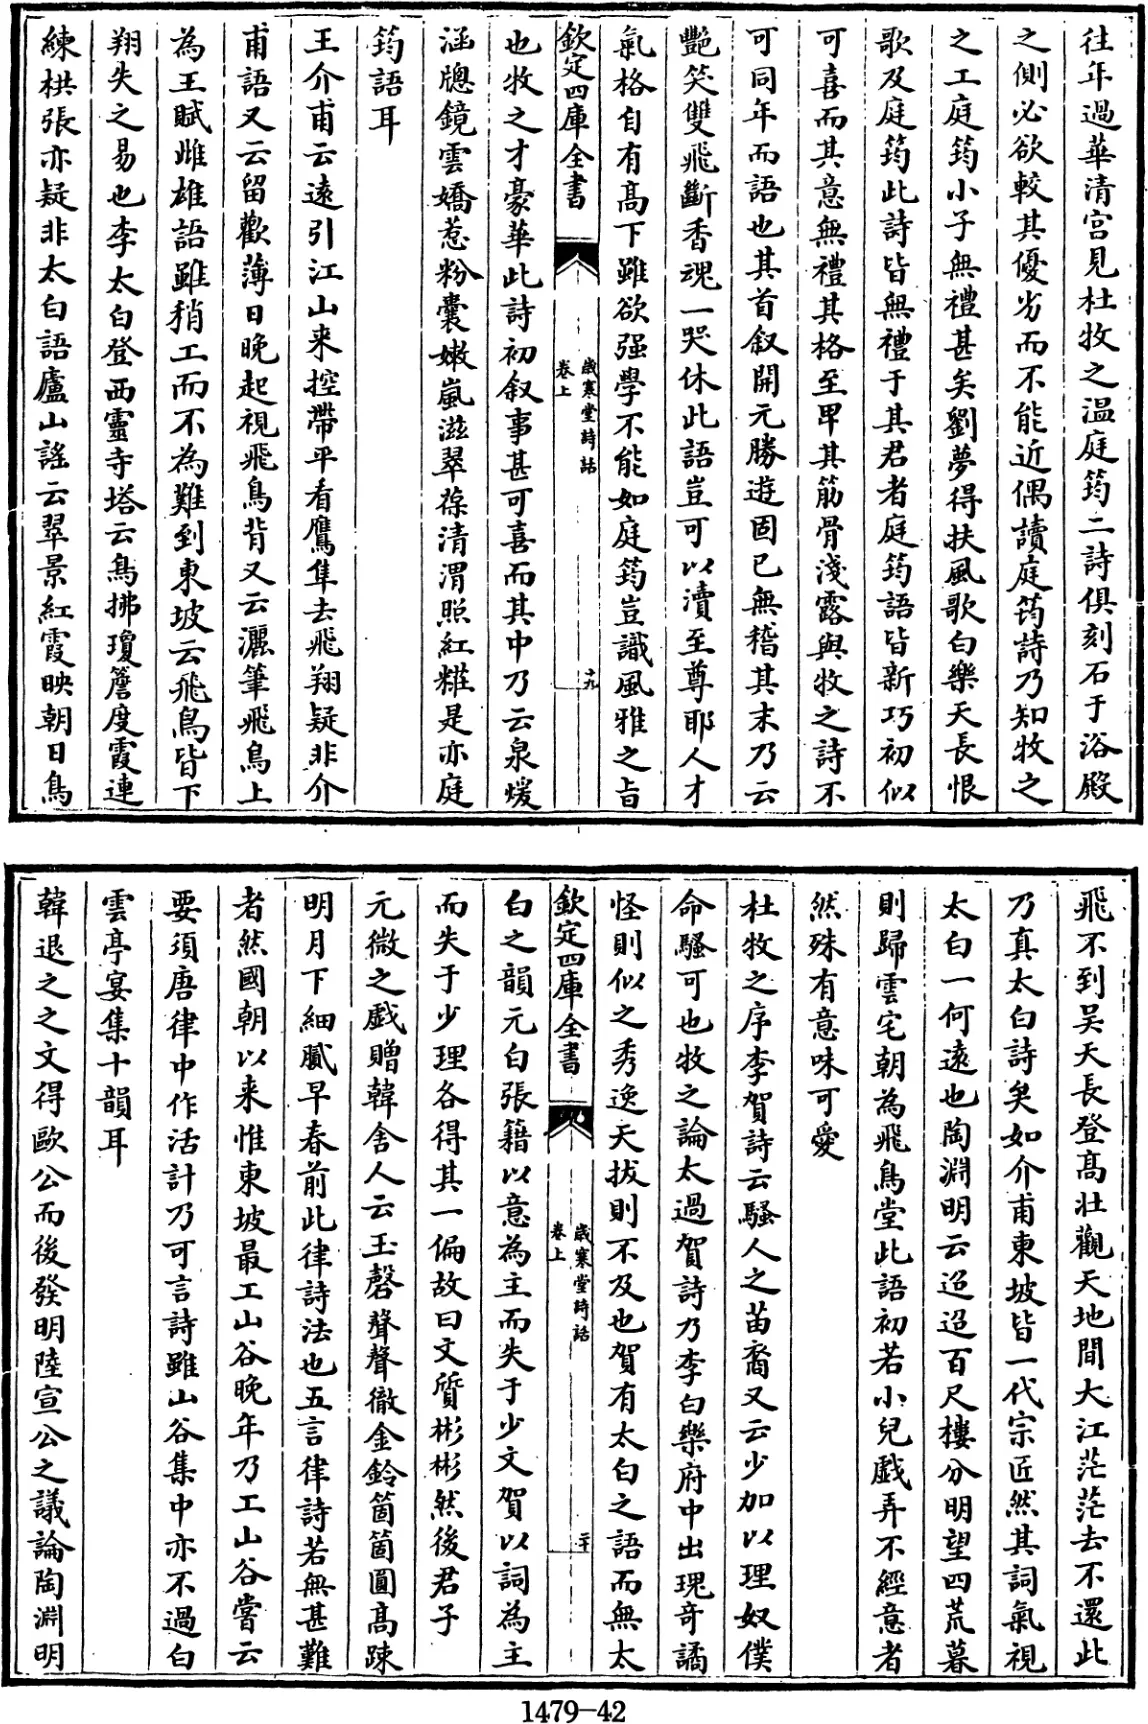 往年過華清宫見杜牧之温庭筠二詩俱刻石于浴殿
之側必欲較其優劣而不能近偶讀庭筠詩乃知牧之
之工庭筠小子無禮甚矣劉夢得扶風歌白樂天長恨
歌及庭筠此詩皆無禮于其君者庭筠語皆新巧初似
可喜而其意無禮其格至卑其筋骨淺露與牧之詩不
可同年而語也其首叙開元勝遊固已無稽其末乃云
艷笑雙飛斷香魂一哭休此語豈可以瀆至尊耶人才
氣格自有高下雖欲强學不能如庭筠豈識風雅之旨
欽定四庫全書
歳寒堂詩話
卷上
十九
也牧之才豪華此詩初叙事甚可喜而其中乃云泉煖
涵牕鏡雲嬌惹粉囊嫩嵐滋翠葆清渭照紅糚是亦庭
筠語耳
王介甫云遠引江山来控帶平看鷹隼去飛翔疑非介
甫語又云留歡薄日晚起視飛鳥背又云灑筆飛鳥上
為王賦雌雄語雖稍工而不為難到東坡云飛鳥皆下
翔失之易也李太白登西靈寺塔云鳥拂瓊簷度霞連
練栱張亦疑非太白語廬山謡云翠景紅霞映朝日鳥
飛不到吴天長登高壯觀天地間大江茫茫去不還此
乃真太白詩矣如介甫東坡皆一代宗匠然其詞氣視
太白一何遠也陶淵明云迢迢百尺樓分明望四荒暮
則歸雲宅朝為飛鳥堂此語初若小兒戲弄不經意者
然殊有意味可愛
杜牧之序李賀詩云騷人之苗裔又云少加以理奴僕
命騷可也牧之論太過賀詩乃李白樂府中出瑰奇譎
怪則似之秀逸天拔則不及也賀有太白之語而無太
欽定四庫全書
歳寒堂詩話
卷上
二十
白之韻元白張籍以意為主而失于少文賀以詞為主
而失于少理各得其一偏故曰文質彬彬然後君子
元微之戲贈韓舍人云玉磬聲聲徹金鈴箇箇圓高疎
明月下細膩早春前此律詩法也五言律詩若無甚難
者然國朝以来惟東坡最工山谷晚年乃工山谷嘗云
要須唐律中作活計乃可言詩雖山谷集中亦不過白
雲亭宴集十韻耳
韓退之之文得歐公而後發明陸宣公之議論陶淵明
1479-42